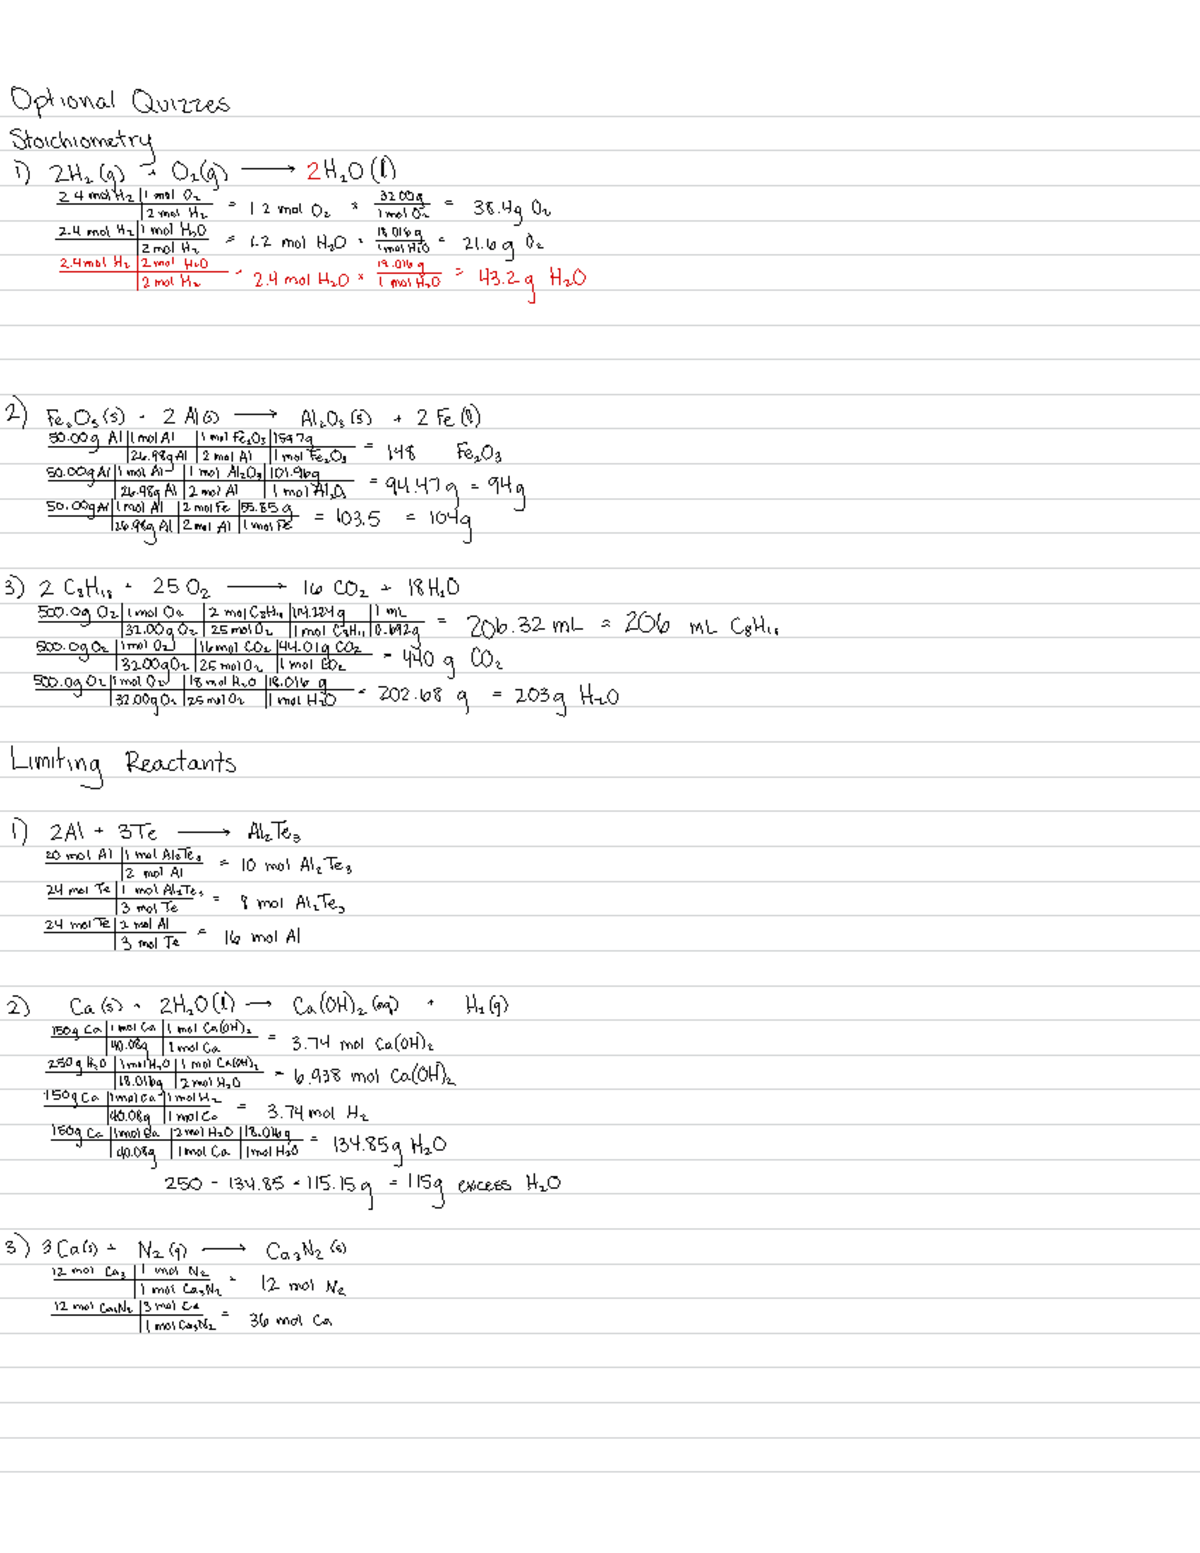 Optional Quizzes
Stoichiometry
1) 2H₂ (g) + O₂(g) ⟶ 2H₂O (l)
2.4 mol H₂ | 1 mol O₂ / 2 mol H₂ = 1.2 mol O₂ × 32.00g / 1 mol O₂ = 38.4g O₂
2.4 mol H₂ | 1 mol H₂O / 2 mol H₂ = 1.2 mol H₂O × 18.016g / 1 mol H₂O = 21.6g O₂
2.4 mol H₂ | 2 mol H₂O / 2 mol H₂ = 2.4 mol H₂O × 18.016g / 1 mol H₂O = 43.2g H₂O
2) Fe₂O₃(s) + 2 Al(s) ⟶ Al₂O₃(s) + 2 Fe(l)
50.00g Al | 1 mol Al / 26.98g Al | 1 mol Fe₂O₃ / 2 mol Al | 159.7g / 1 mol Fe₂O₃ = 148 Fe₂O₃
50.00g Al | 1 mol Al / 26.98g Al | 1 mol Al₂O₃ / 2 mol Al | 101.96g / 1 mol Al₂O₃ = 94.47g = 94g
50.00g Al | 1 mol Al / 26.98g Al | 2 mol Fe / 2 mol Al | 55.85 g / 1 mol Fe = 103.5 = 104g
3) 2 C₈H₁₈ + 25 O₂ ⟶ 16 CO₂ + 18 H₂O
500.0g O₂ | 1 mol O₂ / 32.00g O₂ | 2 mol C₈H₁₈ / 25 mol O₂ | 114.224g / 1 mol C₈H₁₈ | 1 mL / 0.692g = 206.32 mL = 206 mL C₈H₁₈
500.0g O₂ | 1 mol O₂ / 32.00g O₂ | 16 mol CO₂ / 25 mol O₂ | 44.01g CO₂ / 1 mol CO₂ = 440 g CO₂
500.0g O₂ | 1 mol O₂ / 32.00g O₂ | 18 mol H₂O / 25 mol O₂ | 18.016 g / 1 mol H₂O = 202.68 g = 203g H₂O
Limiting Reactants
1) 2Al + 3Te ⟶ Al₂Te₃
20 mol Al | 1 mol Al₂Te₃ / 2 mol Al = 10 mol Al₂Te₃
24 mol Te | 1 mol Al₂Te₃ / 3 mol Te = 8 mol Al₂Te₃
24 mol Te | 2 mol Al / 3 mol Te = 16 mol Al
2) Ca(s) + 2H₂O(l) ⟶ Ca(OH)₂ (aq) + H₂(g)
150g Ca | 1 mol Ca / 40.08g | 1 mol Ca(OH)₂ / 1 mol Ca = 3.74 mol Ca(OH)₂
250g H₂O | 1 mol H₂O / 18.016g | 1 mol Ca(OH)₂ / 2 mol H₂O = 6.938 mol Ca(OH)₂
150g Ca | 1 mol Ca / 40.08g | 1 mol H₂ / 1 mol Ca = 3.74 mol H₂
150g Ca | 1 mol Ca / 40.08g | 2 mol H₂O / 1 mol Ca | 18.016g / 1 mol H₂O = 134.85g H₂O
250 - 134.85 = 115.15g = 115g excess H₂O
3) 3Ca(s) + N₂(g) ⟶ Ca₃N₂ (s)
12 mol Ca₃ | 1 mol N₂ / 1 mol Ca₃N₂ = 12 mol N₂
12 mol Ca₃N₂ | 3 mol Ca / 1 mol Ca₃N₂ = 36 mol Ca